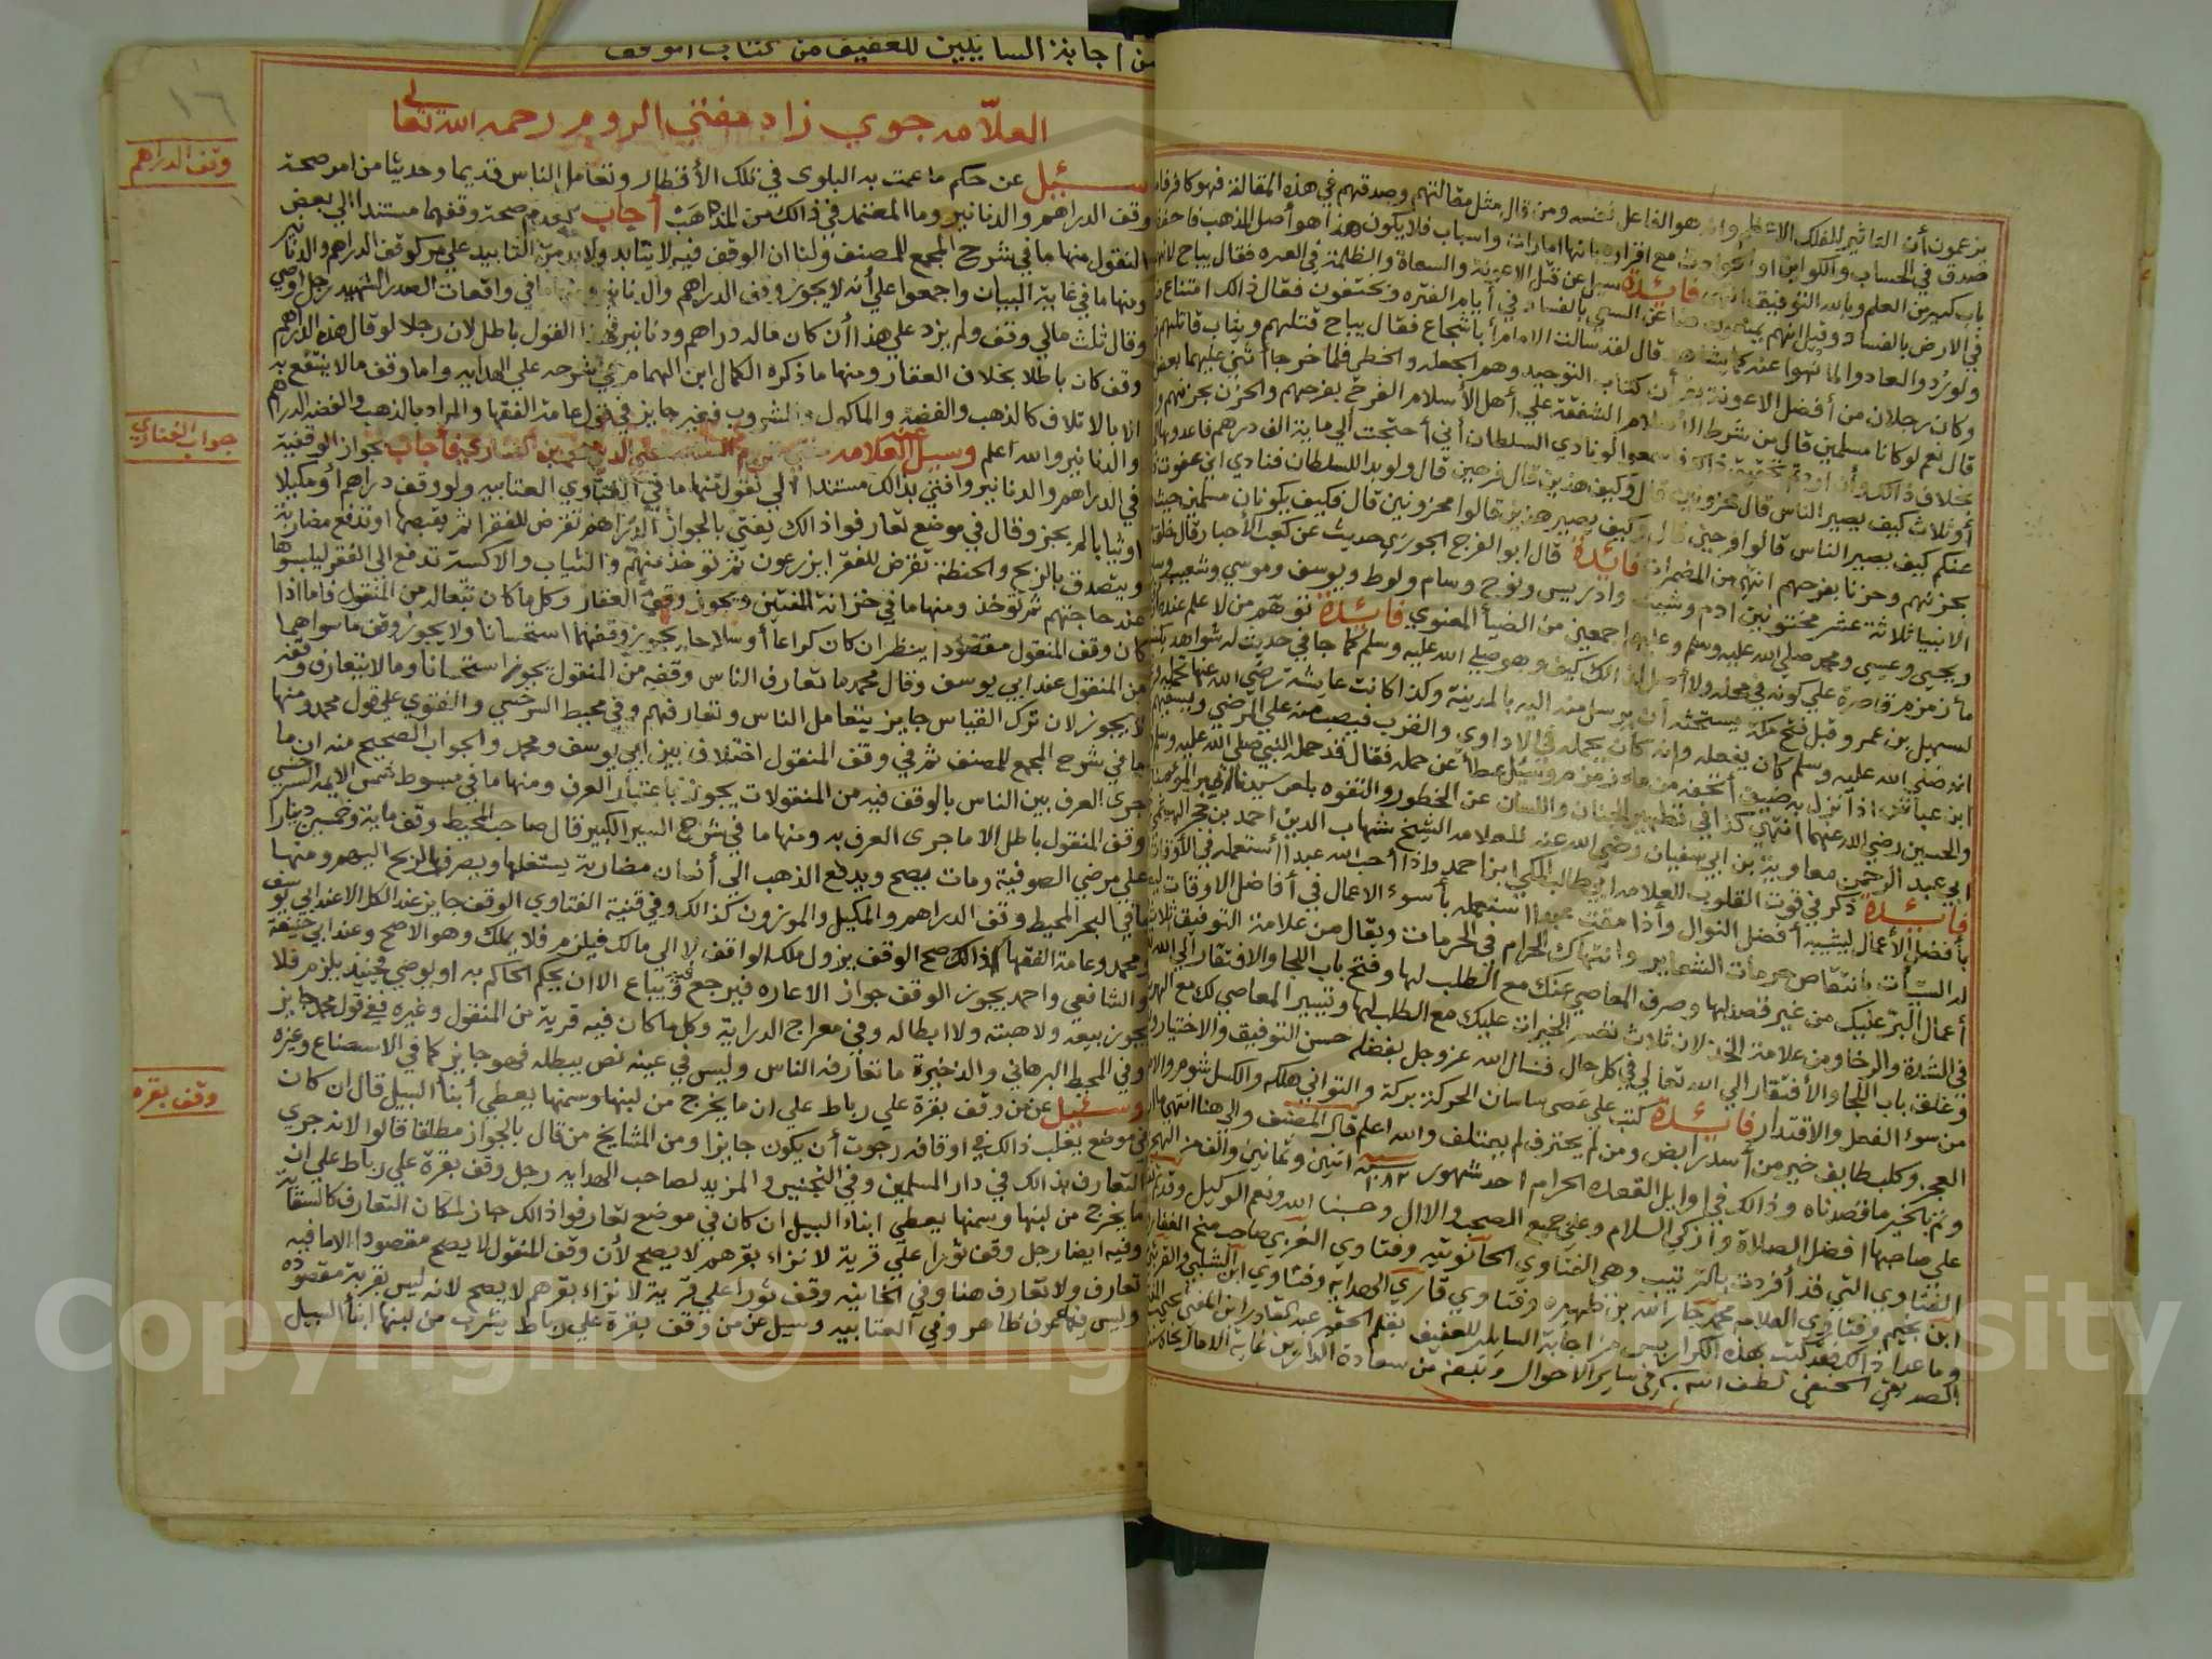 يزعمون أن التاثير للفلك الاعظم وانه هو الفاعل بنفسه ومن قال مثل مقالتهم وصدقهم في هذه المقالة فهو كافر
صدق في الحساب والكواين او الحوادث مع اقراره بانها امارات واسباب فلا يكون هذا هو أصل المذهب
باب كبير من العلم وبالله التوفيق انتهى فايدة سيل عن قتل الاعونة والسعاة والظلمة في الفتره فقال يباح
في الارض بالفساد وقيل انهم يمتنعون عن السعي بالفساد في أيام الفتره ويختفون فقال ذالك امتناع
ولو ردوا لعادوا لما نهوا عنه كما يشاهد قال لقد سالت الامام أبا شجاع فقال يباح قتلهم ويثاب قاتلهم
وكان رجلان من أفضل الاعونة يقرأن كتاب التوحيد وهو الجعله والخطي فلما خرجا أثني عليهما بعض
قال نعم لو كانا مسلمين قال من شرط الأسلام الشفقة علي أهل الأسلام الفرح بفرحهم والحزن بحزنهم
بخلاف ذالك وأن اردتم تحقيق ذالك فاسمعوا لو نادي السلطان أني أحتجت الي ماية الف درهم فاعدوها
أو ثلاث كيف يصير الناس قال محزونين قال وكيف هذين قال فرحين قال ولو بدا للسلطان فنادي اني عفوت
عنكم كيف يصير الناس قالوا فرحين قال وكيف يصير هذين قالوا محزونين قال فكيف يكونان مسلمين حيث
بحزنهم وحزنا بفرحهم انتهي من المضمرات فايدة قال ابو الفرج الجوزي حديث عن كعب الأحبار قال خلق
الانبيا ثلاثة عشر مختونين ادم وشيث وادريس ونوح وسام ولوط ويوسف وموسي وشعيب
ويحيي وعيسي ومحمد صلي الله عليه وسلم وعليهم اجمعين من الضيأ المعنوي فايدة توهم من لا علم عنده
مأ زمزم قاصرة علي كونه في محله ولا أصل لذالك كيف وهو صلي الله عليه وسلم كما جا في حديث له شواهد
لسهيل بن عمرو قبل فتح مكة يستحثه أن يرسل منه اليه بالمدينة وكذا كانت عايشة رضي الله عنها تحمله
انه صلي الله عليه وسلم كان يفعله وانه كان يحمله في الاداوي والقرب فيصب منه علي المرضي ويسقيهم
ابن عباس اذا نزل به ضيف أتحفه من ماء زمزم وسئل عطأ عن حمله فقال قد حمله النبي صلي الله عليه وسلم
والحسين رضي الله عنهما انتهي كذا في تطهير الجنان واللسان عن الخطور والتفوه
ابي عبد الرحمن معاوية بن ابي سفيان رضي الله عنه للعلامه الشيخ شهاب الدين احمد بن حجر الهيتمي
فايدة ذكر في قوت القلوب للعلامه ابي طالب المكي اذا أحب الله عبدا استعمله في
بأفضل الأعمال ليثيبه أفضل النوال واذا مقت عبدا استعمله بأسوء الاعمال في أفاضل الاوقات
له السيأت بانتقاص حرمات الشعاير وانتهاك الحرام في الحرمات ويقال من علامة التوفيق ثلاث
أعمال البر عليك من غير قصد لها وصرف المعاصي عنك مع الطلب لها وفتح باب اللجا والافتقار الي الله
في الشدة والرخا ومن علامة الخذلان ثلاث تعسر الخيرات عليك مع الطلب لها وتيسير المعاصي لك مع الهرب
وغلق باب اللجا والأفتقار الي الله تعالي في كل حال فنسال الله عز وجل بفضله حسن التوفيق والاختيار
من سوء الفعل والاقتدار فايدة كتب علي عصي ساسان الحركة بركة والتواني هلكه والكسل شوم
العجز وكلب طايف خير من أسد رابض ومن لم يحترف لم يعتلف والله اعلم قال المصنف والي هنا انتهي
وتم بالخير ما قصدناه وذالك في اوايل القعده الحرام احد شهور سنة ١٠٨٢ اثنين وثمانين والف من
علي صاحبها افضل الصلاة وأزكي السلام وعلي جميع الصحب والال وحسبنا الله ونعم الوكيل
الفتاوي التي قد أفردت بالترتيب وهي الفتاوي الحانوتيه وفتاوي الغزي صاحب منح الغفار
ابن نجيم وفتاوي العلامه محمد جار الله بن ظهيره وفتاوي قاري الهدايه وفتاوي ابن الشلبي
وما عدا ذالك فقد كتب بهذه الكراريس من اجابة السايلين للعفيف بقلم الحقير عبد القادر ابن المفتي
الصديقي الحنفي لطف الله به في ساير الاحوال وبلغه من سعادة الدارين غاية الامال
من اجابة السايلين للعفيف من كتاب الوقف
١٦
العلامه جوي زاد مفتي الروم رحمه الله تعالي
وقف الدراهم
سئيل عن حكم ما عمت به البلوى في تلك الأقطار وتعامل الناس قديما وحديثا من امر صحة
وقف الدراهم والدنانير وما المعتمد في ذالك من المذهب أجاب بعدم صحة وقفهما مستندا الي بعض
النقول منها ما في شرح المجمع للمصنف ولنا ان الوقف فيه لا يتابد ولا بد من التابيد علي مر كوقف الدراهم والدنانير
ومنها ما في غاية البيان واجمعوا علي أنه لا يجوز وقف الدراهم والدنانير ومنها ما في واقعات الصدر الشهيد رجل اوصي
وقال ثلث مالي وقف ولم يزد علي هذا أن كان ماله دراهم ودنانير فهذا القول باطل لان رجلا لو قال هذه الدراهم
وقف كان باطلا بخلاف العقار ومنها ما ذكره الكمال ابن الهمام في شرحه علي الهدايه واما وقف مالا ينتفع به
الا بالاتلاف كالذهب والفضة والماكول والمشروب فغير جايز في قول عامة الفقها والمراد بالذهب والفضه الدراهم
والدنانير والله اعلم وسيل عنه العلامه فأجاب بجواز الوقفية
جواب الفناري
في الدراهم والدنانير وافتي بذالك مستندا الي نقول منها ما في الفتاوي العتابيه ولو وقف دراهم أو مكيلا
او ثيابا لم يجز وقال في موضع تعارفوا ذالك يفتي بالجواز الدراهم تقرض للفقرا ثم يقبضها او تدفع مضاربة
ويتصدق بالربح والحنطة تقرض للفقرا يزرعون ثم توخذ منهم والثياب والاكسة تدفع الي الفقر ليلبسوها
عند حاجتهم ثم توخذ ومنها ما في خزانة المفتين ويجوز وقف العقار وكل ما كان تبعا له من المنقول فاما اذا
كان وقف المنقول مقصودا ينظر ان كان كراعا أو سلاحا يجوز وقفهما استحسانا ولا يجوز وقف ما سواهما
من المنقول عند ابي يوسف وقال محمد ما تعارف الناس وقفه من المنقول يجوز استحسانا وما لا يتعارف وقفه
لا يجوز لان ترك القياس جايز بتعامل الناس وتعارفهم وفي محيط السرخسي والفتوي علي قول محمد ومنها
ما في شرح المجمع للمصنف ثم في وقف المنقول اختلاف بين ابي يوسف ومحمد والجواب الصحيح منه ان ما
جرى العرف بين الناس بالوقف فيه من المنقولات يجوز باعتبار العرف ومنها ما في مبسوط شمس الايمه السرخسي
وقف المنقول باطل الا ما جرى العرف به ومنها ما في شرح السير الكبير قال صاحب المحيط وقف ماية وخمسين دينارا
علي مرضي الصوفية ومات يصح ويدفع الذهب الي أنسان مضاربة يستغلها ويصرف الربح اليهم ومنها
ما في البحر المحيط وقف الدراهم والمكيل والموزون كذالك وفي قنية الفتاوي الوقف جايز عند الكل الا عند ابي يوسف
ومحمد وعامة الفقها اذا صح الوقف يزول ملك الواقف لا الى مالك فيلزم فلا يملك وهو الاصح وعند ابي حنيفة
والشافعي واحمد يجوز الوقف جواز الاعاره فيرجع فيه ويباع الا ان يحكم الحاكم به او يوصي فحينيذ يلزم فلا
يجوز بيعه ولا هبته ولا ابطاله وفي معراج الدراية وكل ما كان فيه قرية من المنقول وغيره ففي قول محمد جايز
وفي المحيط البرهاني والذخيرة ما تعارفه الناس وليس في عينه نص يبطله فهو جايز كما في الاستصناع وغيره
وقف بقره
وسئيل عن من وقف بقرة علي رباط علي ان ما يخرج من لبنها وسمنها يعطي أبنأ السبيل قال ان كان
في موضع يغلب ذالك في اوقافه رجوت أن يكون جايزا ومن المشايخ من قال بالجواز مطلقا قالوا لانه جري
التعارف بذالك في دار المسلمين وفي التجنيس والمزيد لصاحب الهدايه رجل وقف بقرة علي رباط علي ان
ما يخرج من لبنها وسمنها يعطي ابناء السبيل ان كان في موضع تعارفوا ذالك جاز لمكان التعارف كالسقاية
وفيه ايضا رجل وقف ثورا علي قرية لانزاء بقرهم لا يصح لأن وقف المنقول لا يصح مقصودا الا ما فيه
تعارف ولا تعارف هنا وفي الخانيه وقف ثورا علي قرية لانزاء بقرهم لا يصح لانه ليس بقربة مقصوده
وليس فيها عرف ظاهر وفي العتابيه وسيل عن من وقف بقرة علي رباط يشرب من لبنها ابنأ السبيل
Copyright © King Saud University